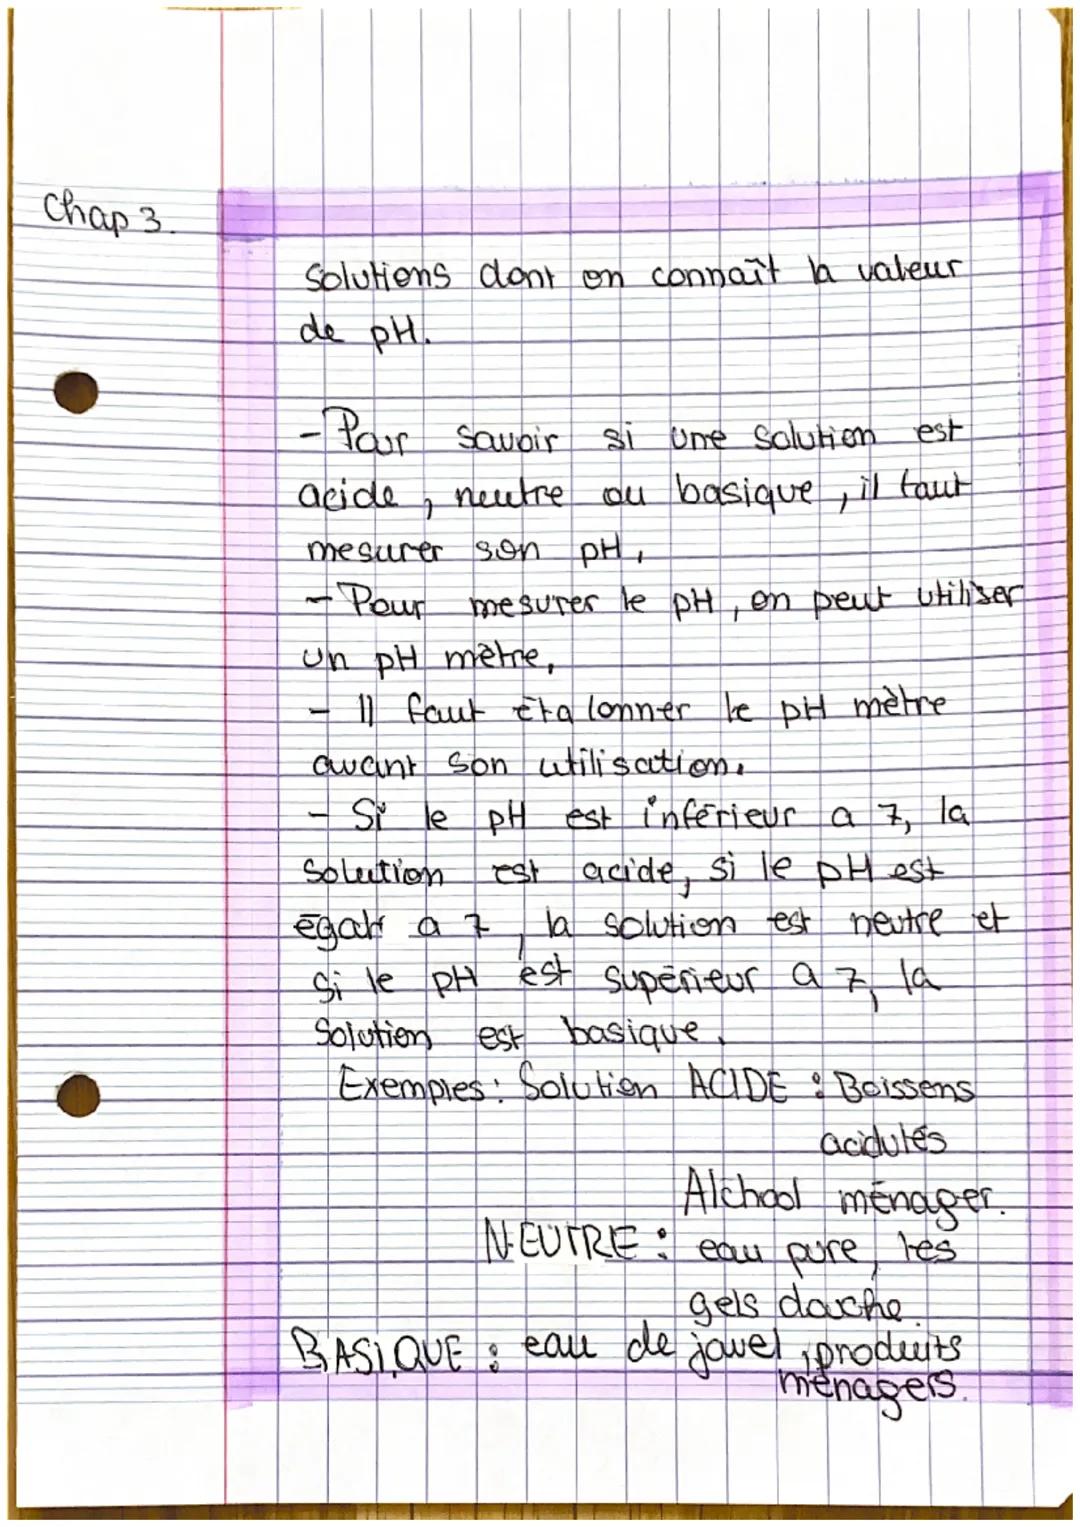 Chap 3.
solutions dont on connaît la valeur
de pH.
- Pour savoir si une solution est
acide, neutre ou basique, il faut
mesurer son pH,
- Pour mesurer le pH, on peut utiliser
un pH mètre,
- Il faut étalonner le pH mètre
avant son utilisation.
- Si le pH est inférieur a 7, la
solution est acide, si le pH est
égale a 7, la solution est neutre et
si le pH est supérieur a 7, la
solution est basique.
Exemples : Solution ACIDE : Boissons
acidulés
Alchool ménager.
NEUTRE : eau pure, les
gels douche.
BASIQUE : eau de javel, produits
ménagers.